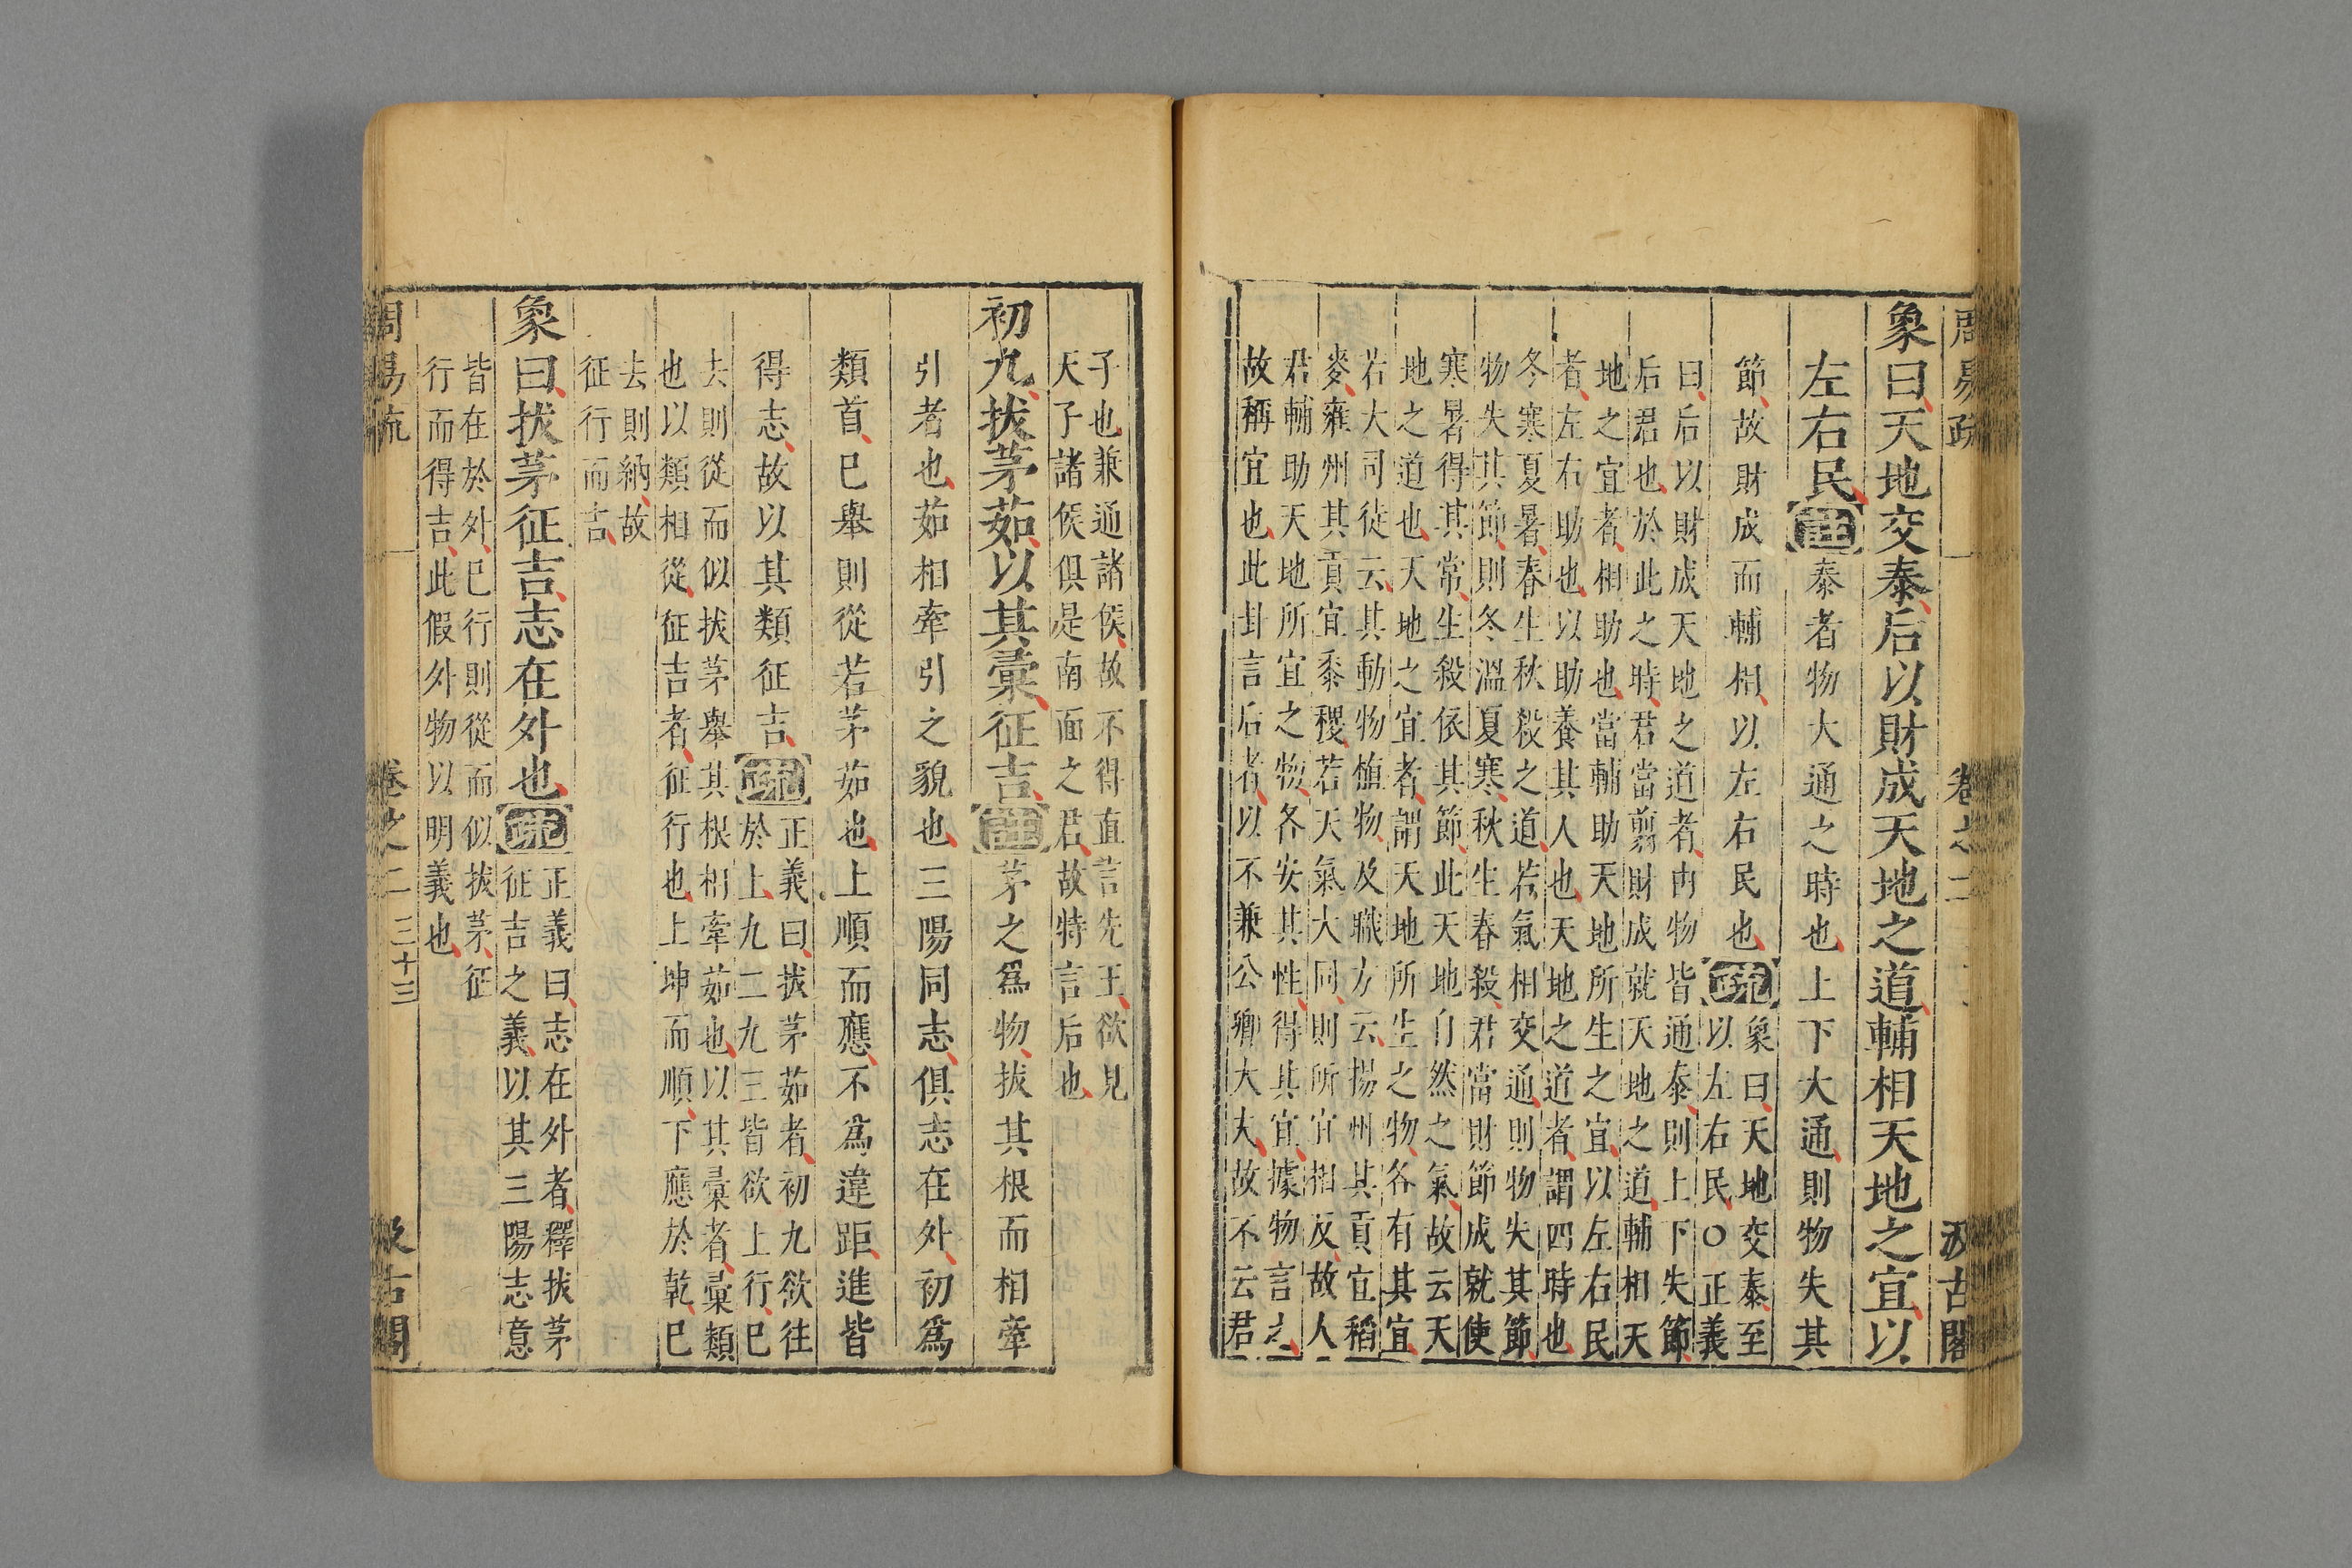 周易疏 卷之二 汲古閣
象曰天地交泰后以財成天地之道輔相天地之宜以
左右民註泰者物大通之時也上下大通則物失其
節故財成而輔相以左右民也疏
象曰天地交泰至
以左右民○正義
曰后以財成天地之道者由物皆通泰則上下失節
后君也於此之時君當翦財成就天地之道輔相天
地之宜者相助也當輔助天地所生之宜以左右民
者左右助也以助養其人也天地之道者謂四時也
冬寒夏暑春生秋殺之道若氣相交通則物失其節
物失其節則冬溫夏寒秋生春殺君當財節成就使
寒暑得其常生殺依其節此天地自然之氣故云天
地之道也天地之宜者謂天地所生之物各有其宜
若大司徒云其動物植物及職方云揚州其貢宜稻
麥雍州其貢宜黍稷若天氣大同則所宜相反故人
君輔助天地所宜之物各安其性得其宜據物言之
故稱宜也此卦言后者以不兼公卿大夫故不云君
子也兼通諸侯故不得直言先王欲見
天子諸侯俱是南面之君故特言后也
初九拔茅茹以其彙征吉註茅之為物拔其根而相牽
引者也茹相牽引之貌也三陽同志俱志在外初爲
類首已舉則從若茅茹也上順而應不爲違距進皆
得志故以其類征吉疏
正義曰拔茅茹者初九欲往
於上九二九三皆欲上行已
去則從而似拔茅舉其根相牽茹也以其彙者彙類
也以類相從征吉者征行也上坤而順下應於乾已
去則納故
征行而吉
象曰拔茅征吉志在外也疏
正義曰志在外者釋拔茅
征吉之義以其三陽志意
皆在於外已行則從而似拔茅征
行而得吉此假外物以明義也
周易疏 卷之二 三十三 汲古閣